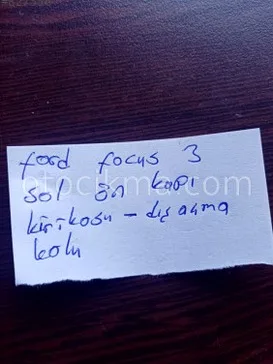 ford focus 3
sol ön kapı
kirikosu - dış açma
kolu
otocikma.com